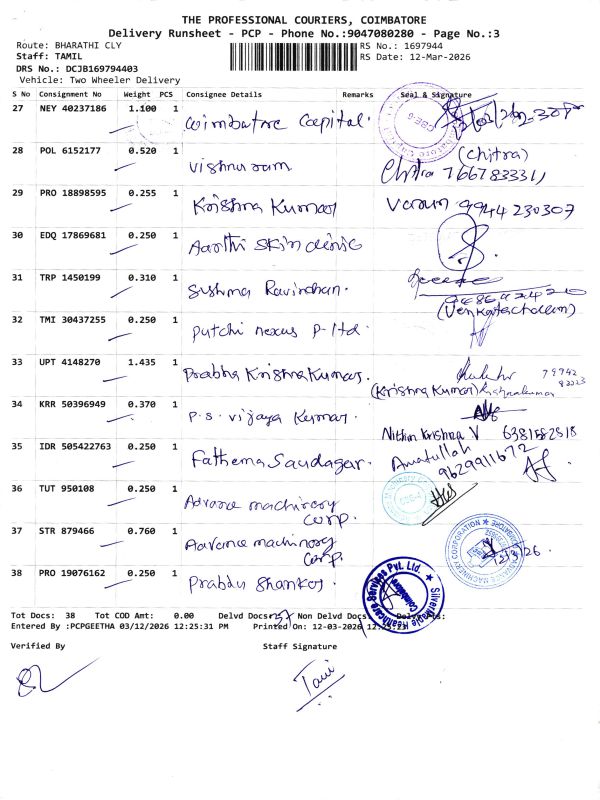 THE PROFESSIONAL COURIERS, COIMBATORE
Delivery Runsheet - PCP - Phone No.:9047080280 - Page No.:3
Route: BHARATHI CLY
RS No.: 1697944
Staff: TAMIL
RS Date: 12-Mar-2026
DRS No.: DCJB169794403
Vehicle: Two Wheeler Delivery
S No Consignment No Weight PCS Consignee Details Remarks Seal & Signature
27 NEY 40237186 1.100 1 Coimbatore Capital.
28 POL 6152177 0.520 1 Vishnu ram (Chitra)
Chitra 7667833311
29 PRO 18898595 0.255 1 Krishna Kumar Varun 9944230307
30 EDQ 17869681 0.250 1 Aarthi Skin clinic
31 TRP 1450199 0.310 1 Sushma Ravindran.
(Venkatachalam)
32 TMI 30437255 0.250 1 Putchi nexus P-ltd.
33 UPT 4148270 1.435 1 Prabha Krishna Kumar.
(Krishna Kumar) Krishnakumar
34 KRR 50396949 0.370 1 P.S. Vijaya Kumar.
Nithin Krishna V 6381582518
35 IDR 505422763 0.250 1 Fathema Saudagar. Amatullah
9629911672
36 TUT 950108 0.250 1 Advance machinery
Corp.
37 STR 879466 0.760 1 Advance machinery
Corp.
38 PRO 19076162 0.250 1 Prabhu Shankar.
Silverneedle Healthcare Services Pvt. Ltd.
Coimbatore
Tot Docs: 38 Tot COD Amt: 0.00 Delvd Docs: 37 Non Delvd Docs
Entered By :PCPGEETHA 03/12/2026 12:25:31 PM Printed On: 12-03-2026
Verified By Staff Signature